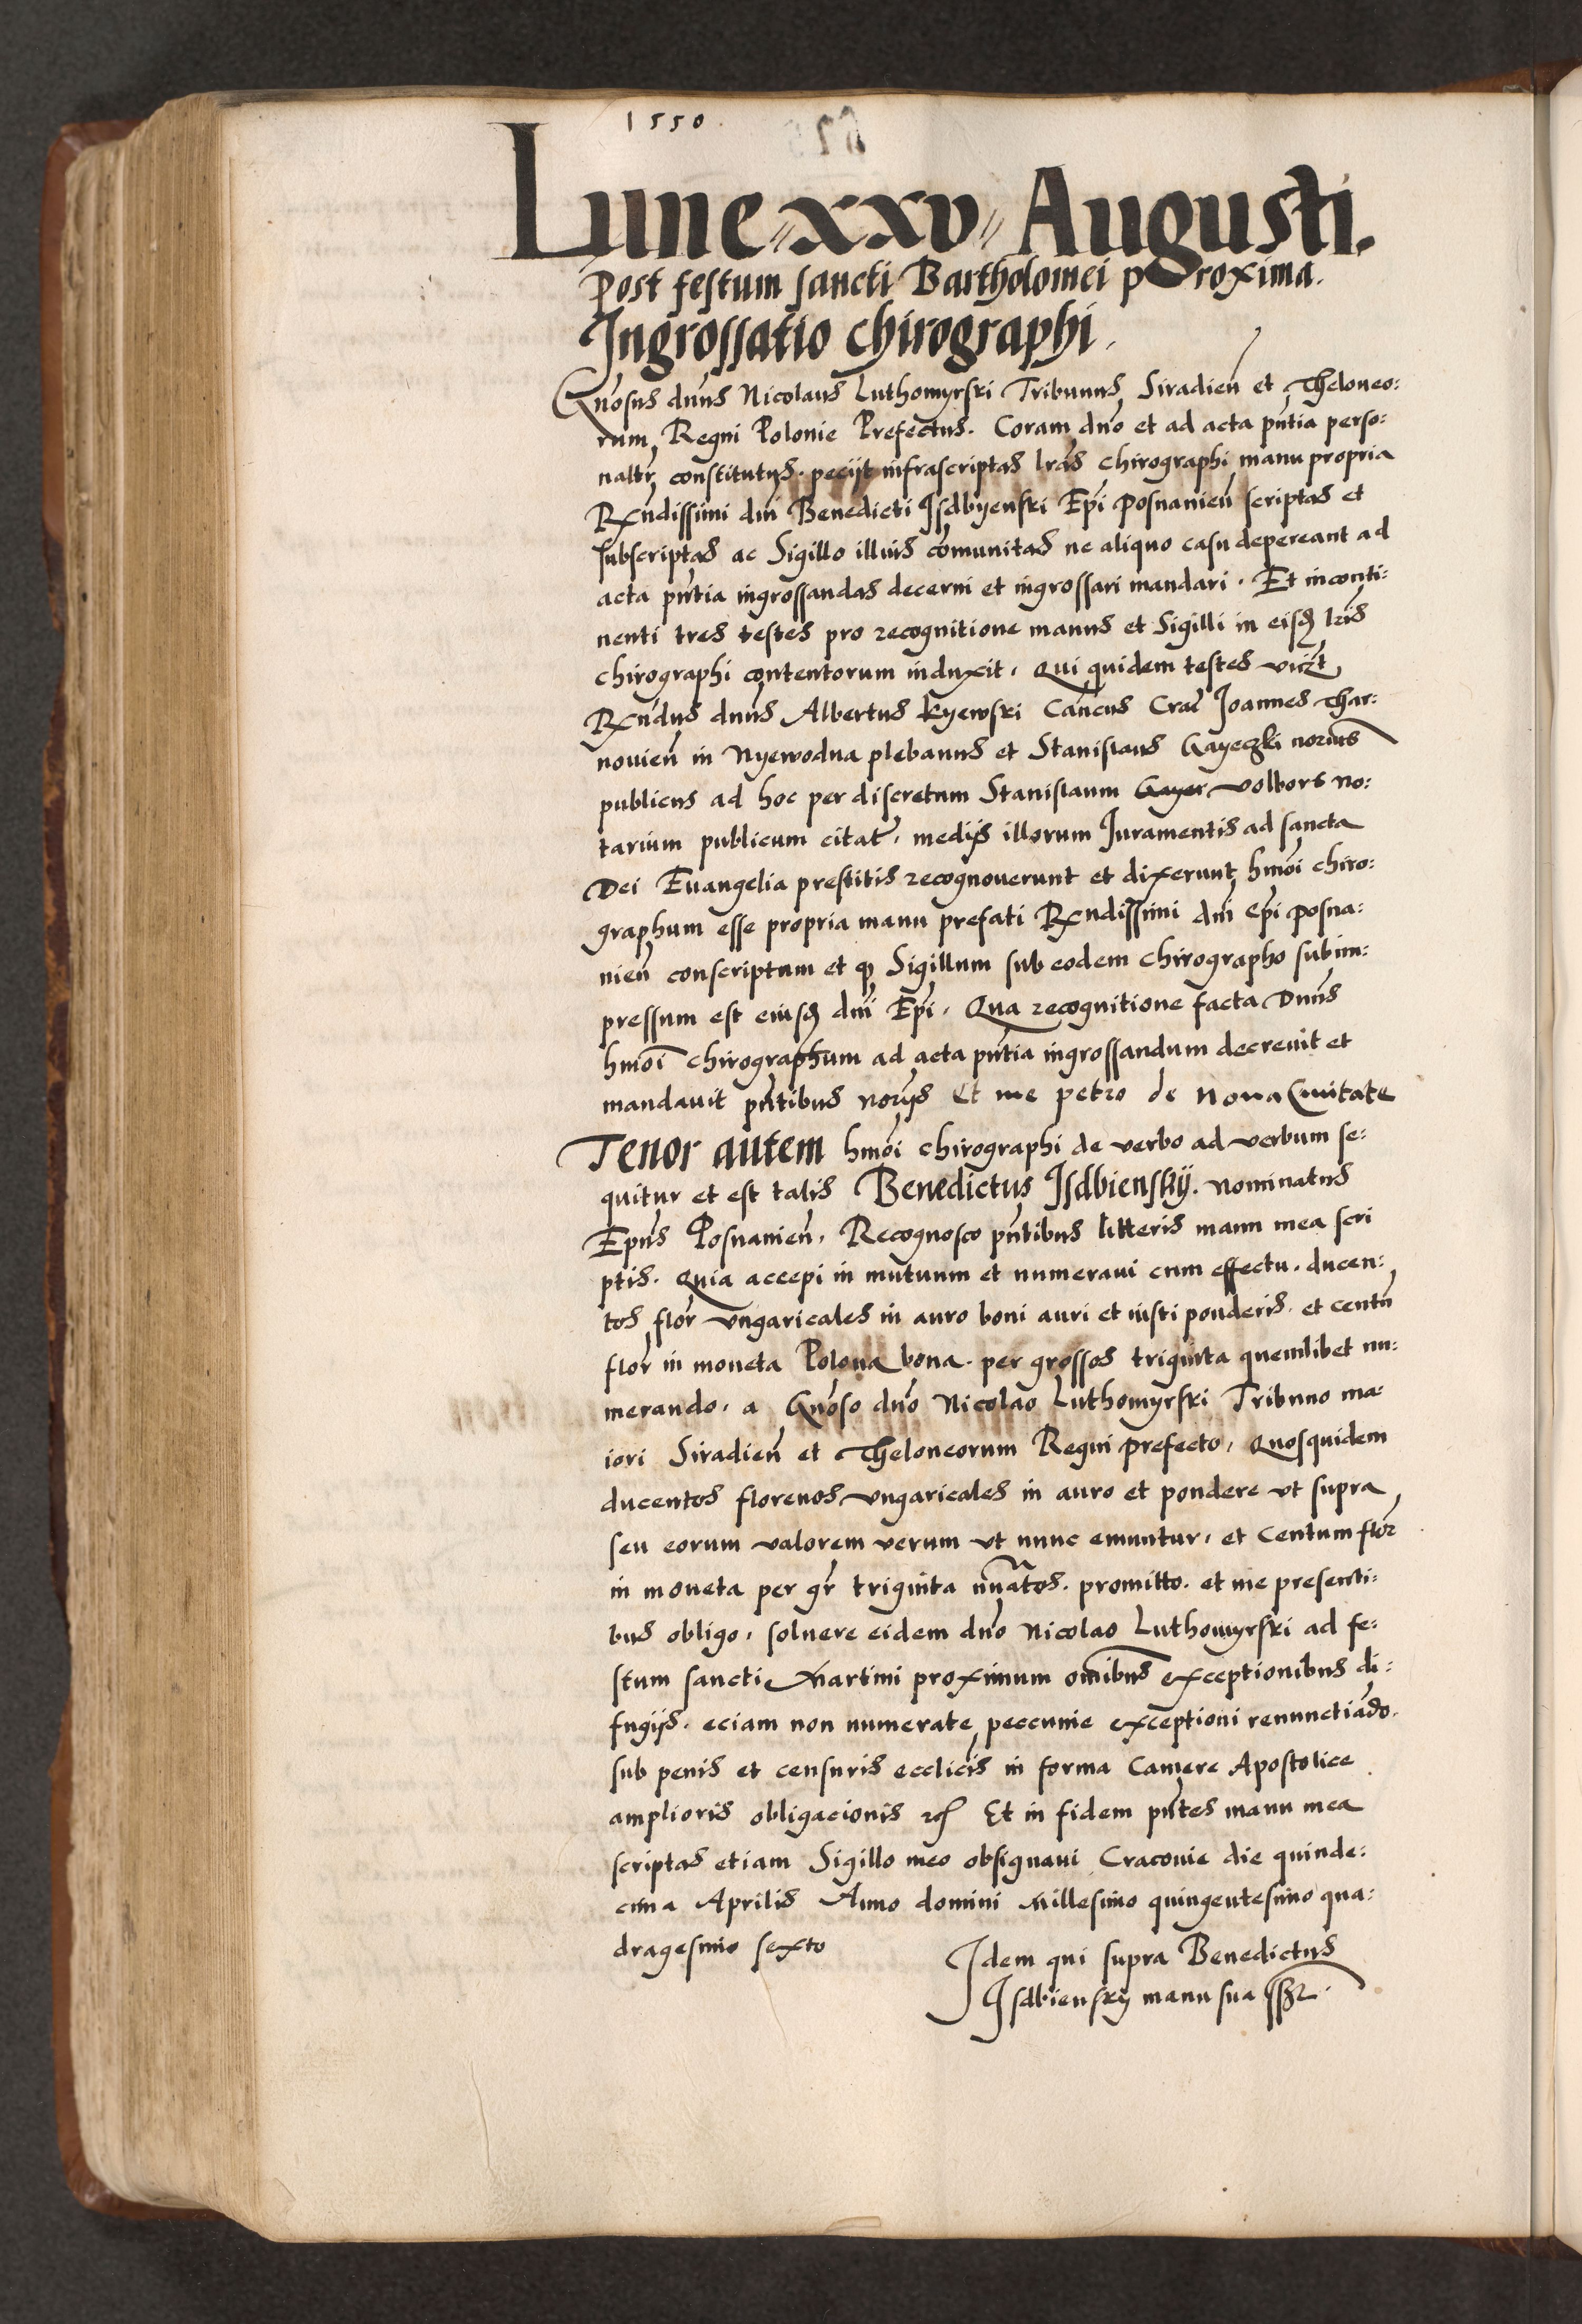 1550
Lune xxv Augusti.
Post festum sancti Bartholomei proxima.
Ingrossatio chirographi.
Gnosus dnus Nicolaus Luthomyrski Tribunus Siradien et Theloneo:
rum Regni Polonie Prefectus. Coram dno et ad acta pntia perso:
naltr constitutus. peciit infrascriptas lras chirographi manu propria
Rxndissimi dni Benedicti Isdbyenski Epi Posnanien scriptas et
subscriptas ac Sigillo illius comunitas ne aliquo casu depereant ad
acta pntia ingrossandas decerni et ingrossari mandari. Et inconti:
nenti tres testes pro recognitione manus et Sigilli in eisd lris
chirographi contentorum induxit. Qui quidem testes vičzt
Rxndus dnus Albertus Kyewski Cancus Crac Joannes Thar:
novien in Nyewodna plebanus et Stanislaus Gayeczki norius
publicus ad hoc per discretum Stanislaum Gayer Volbors no:
tarium publicum citat. mediis illorum Iuramentis ad sancta
Dei Euangelia prestitis recognoverunt et dixerunt hmoi chiro:
graphum esse propria manu prefati Rxndissimi dni Epi Posna:
nien conscriptum et q Sigillum sub eodem chirographo subim:
pressum est eiusd dni Epi. Qua recognitione facta Dnus
hmoi chirographum ad acta pntia ingrossandum decrevit et
mandavit pntibus noriis Et me petro de Nova Civitate
Tenor autem hmoi chirographi de verbo ad verbum se:
quitur et est talis Benedictus Isdbiensky. nominatus
Epus Posnanien. Recognosco pntibus litteris manu mea scri
ptis. Quia accepi in mutuum et numeravi cum effectu. ducen:
tos flor ungaricales in auro boni auri et iusti ponderis. et centu
flor in moneta Polona bona. per grossos triginta quemlibet nu:
merando. a Gnoso dno Nicolao Luthomyrski Tribuno ma:
iori Siradien et Theloneorum Regni prefecto. Quosquidem
ducentos florenos ungaricales in auro et pondere ut supra
seu eorum valorem verum ut nunc emuntur. et Centum flor
in moneta per gr triginta nuatos. promitto. et me presenti:
bus obligo. solvere eidem dno Nicolao Luthomyrski ad fe:
stum sancti Martini proximum omibus exceptionibus di:
fugiis. eciam non numerate peccunie exceptioni renunctiado.
sub penis et censuris ecclicis in forma Camere Apostolice
amplioris obligacionis rc Et in fidem pntes manu mea
scriptas etiam Sigillo meo obsignavi Cracovie die quinde:
cima Aprilis Anno domini Millesimo quingentesimo qua:
dragesimo sexto
Idem qui supra Benedictus
Isdbiensky manu sua